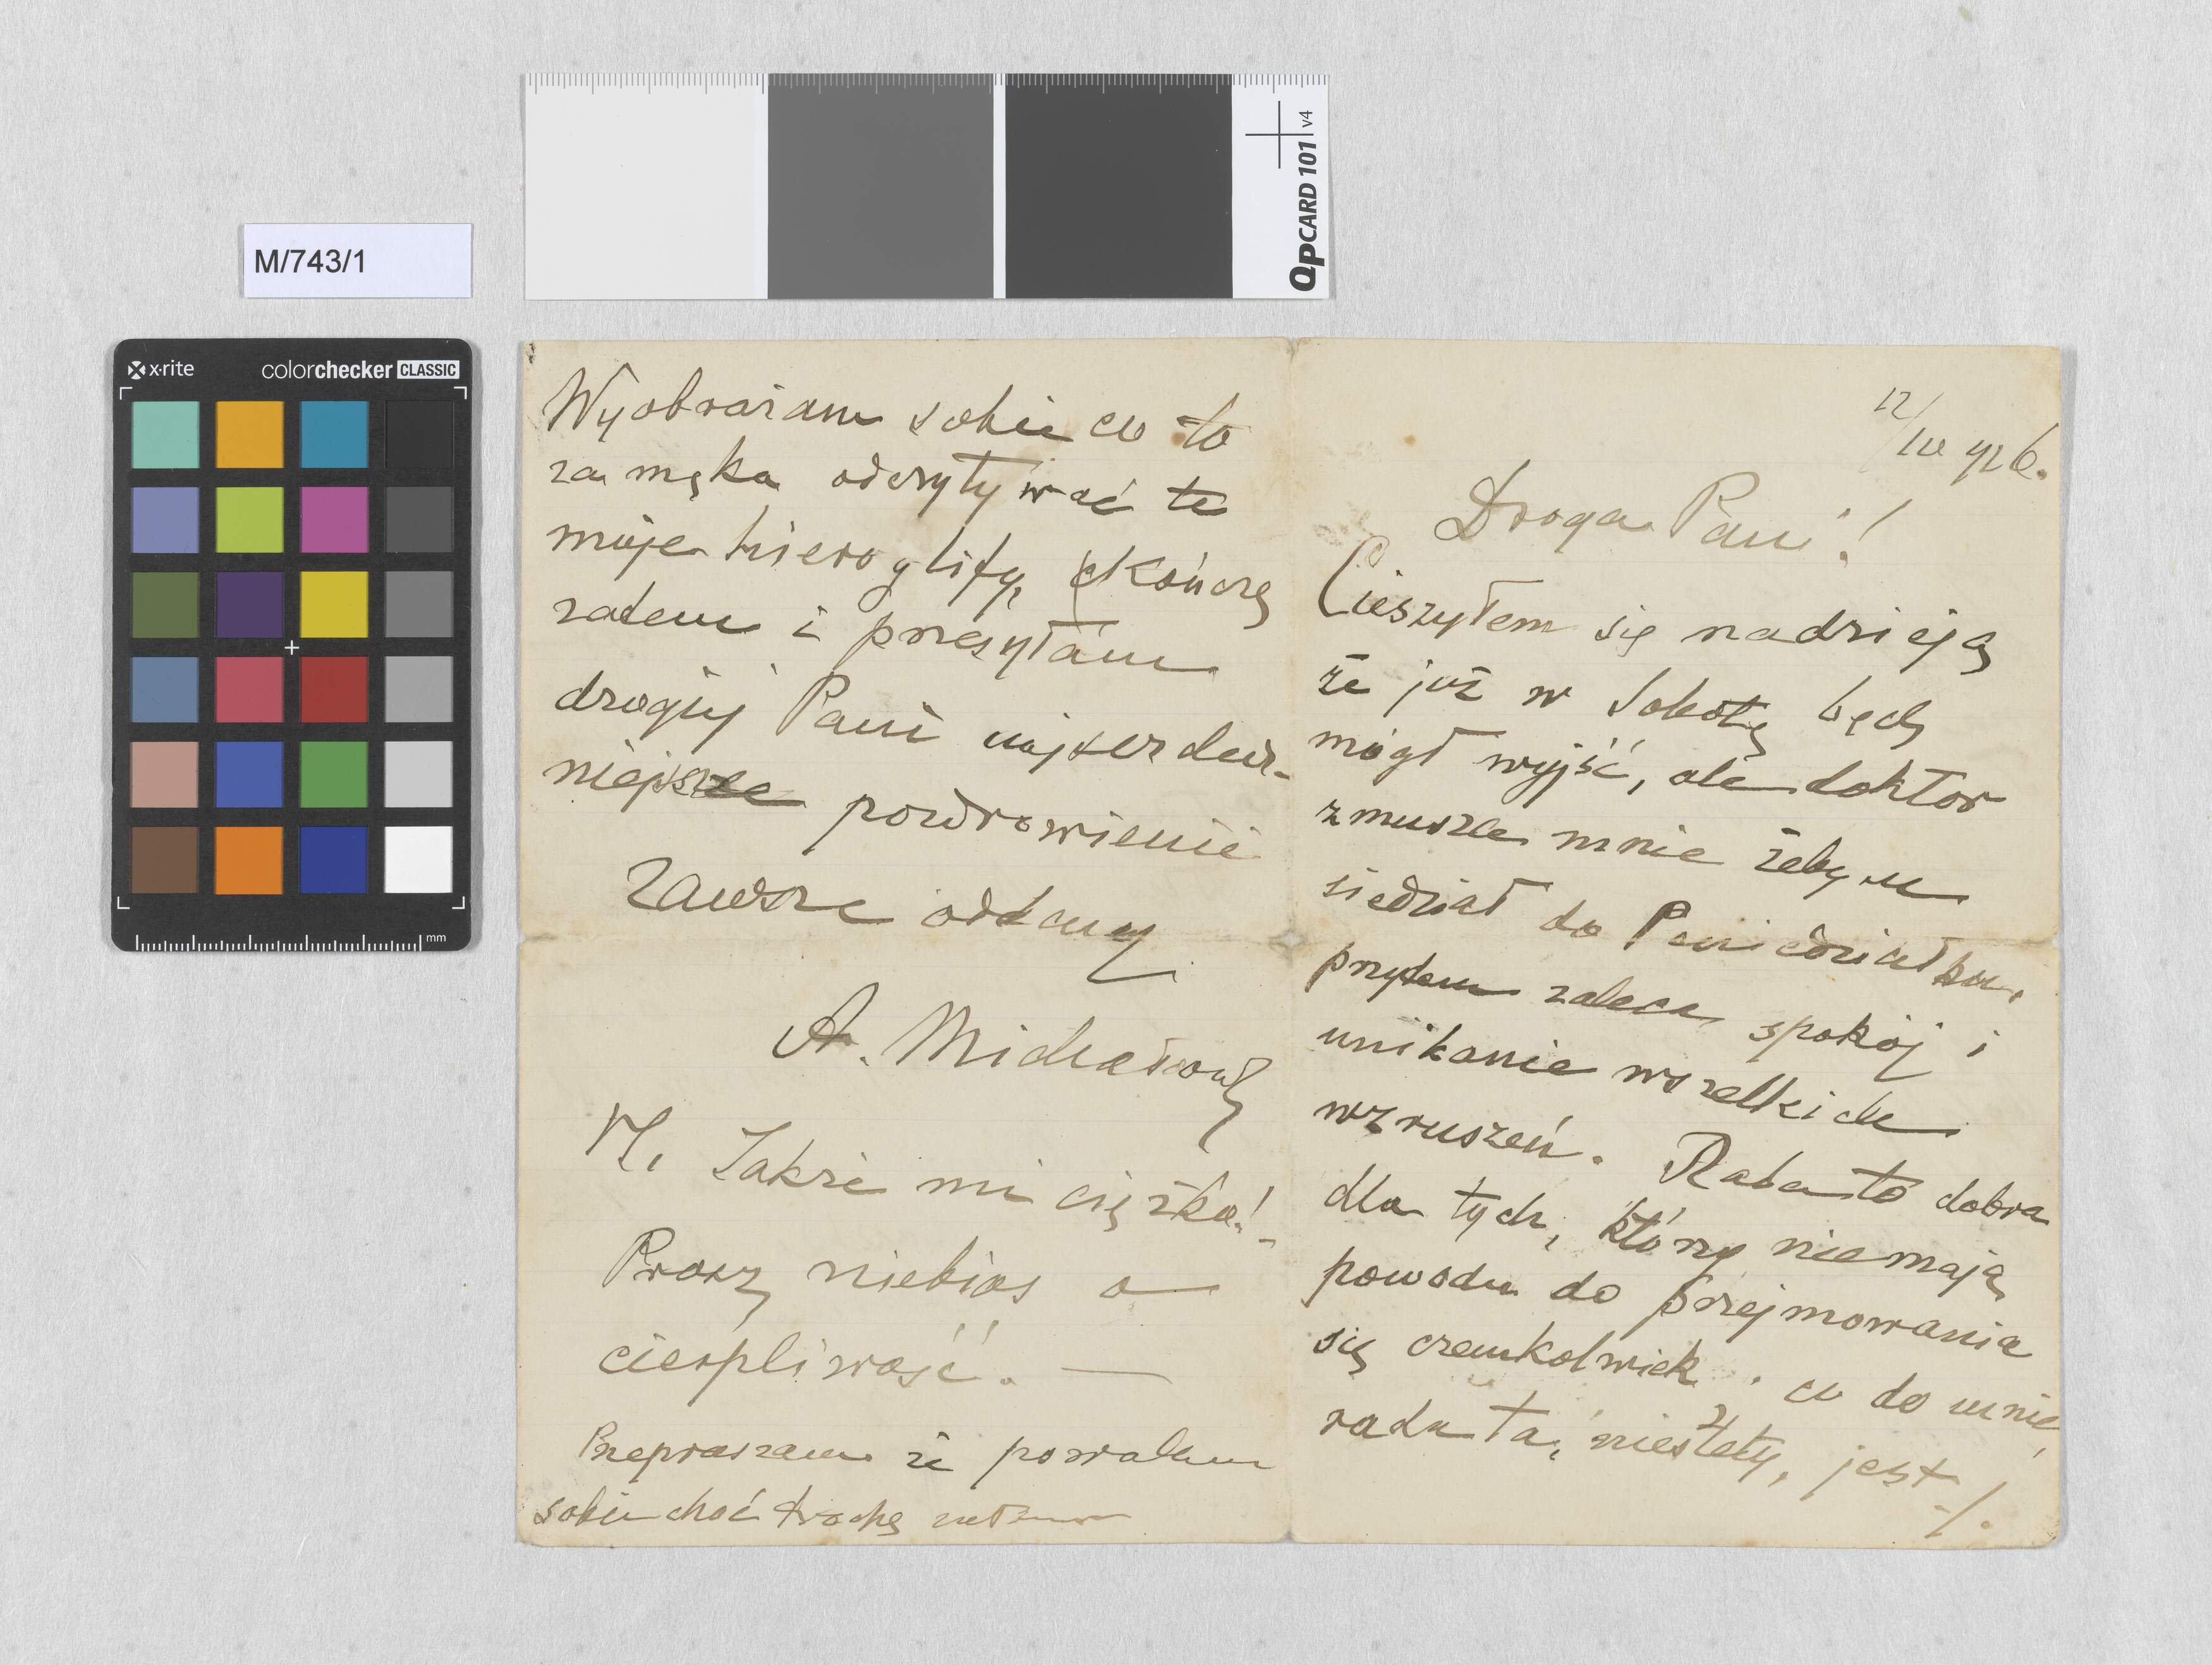 M/743/1
QPCARD 101 v4
x·rite
colorchecker CLASSIC
mm
12/III 926.
Droga Pani!
Cieszyłem się nadzieją
że już w Sobotę będę
mógł wyjść, ale doktor
zmusza mnie żebym
siedział do Poniedziałku,
przytem zaleca spokój i
unikanie wszelkich
wzruszeń. Rada to dobra
dla tych, którzy niemają
powodu do przejmowania
się czemkolwiek. co do mnie,
rada ta, niestety, jest ./.
Wyobrażam sobie co to
za męka odczytywać te
moje hieroglify, kończę
zatem i przesyłam
drogiej Pani najserdecz-
niejsze pozdrowienie
zawsze oddany
A. Michałowski
Także mi ciężko!
Proszę niebios o
cierpliwość. —
Przepraszam że pozwalam
sobie choć trochę